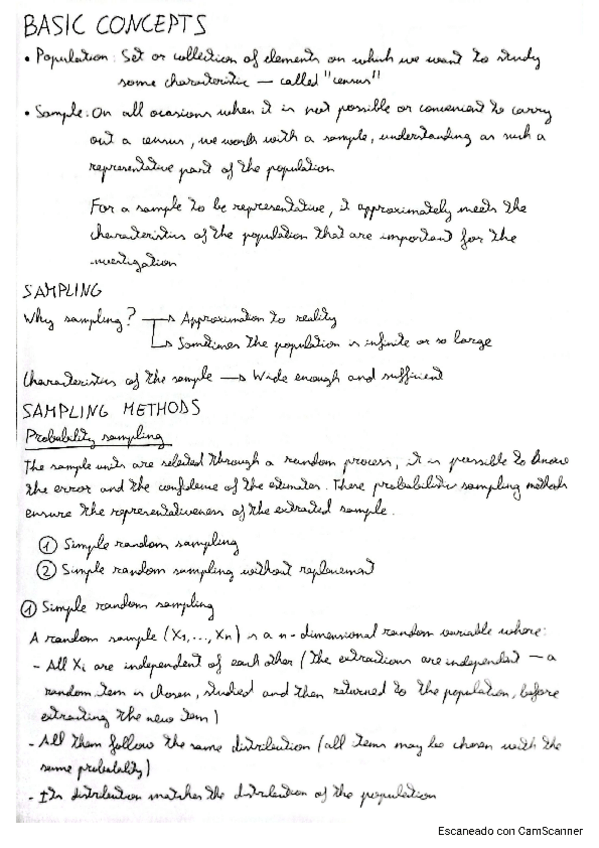 BASIC CONCEPTS
• Population: Set or collection of elements on which we want to study
some characteristic — called "census"
• Sample: On all ocasions when it is not possible or convenient to carry
out a census, we work with a sample, understanding as such a
representative part of the population
For a sample to be representative, it approximately meets the
characteristics of the population that are important for the
investigation
SAMPLING
Why sampling? → Approximation to reality
→ Sometimes the population is infinite or so large
Characteristics of the sample → Wide enough and sufficient
SAMPLING METHODS
Probability sampling
The sample units are selected through a random process, it is possible to know
the error and the confidence of the estimates. These probabilistic sampling methods
ensure the representativeness of the extracted sample.
① Simple random sampling
② Simple random sampling without replacement
① Simple random sampling
A random sample (X1, ..., Xn) is a n-dimensional random variable where:
- All Xi are independent of each other (the extractions are independent — a
random item is chosen, studied and then returned to the population, before
extracting the new item)
- All them follow the same distribution (all items may be chosen with the
same probability)
- Its distribution matches the distribution of the population
Escaneado con CamScanner